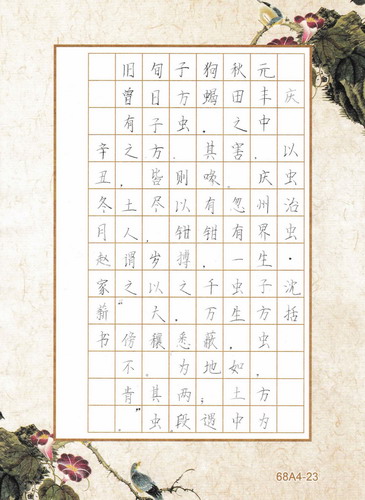 庆以虫治虫·沈括
元丰中，庆州界生子方虫，方为
秋田之害。忽有一虫生，如土中
狗蝎，其喙有钳，千万蔽地；遇
子方虫，则以钳搏之，悉为两段。
旬日子方皆尽，岁以大穰。其虫
旧曾有之，土人谓之“傍不肯”。
辛丑冬月赵家书
68A4-23